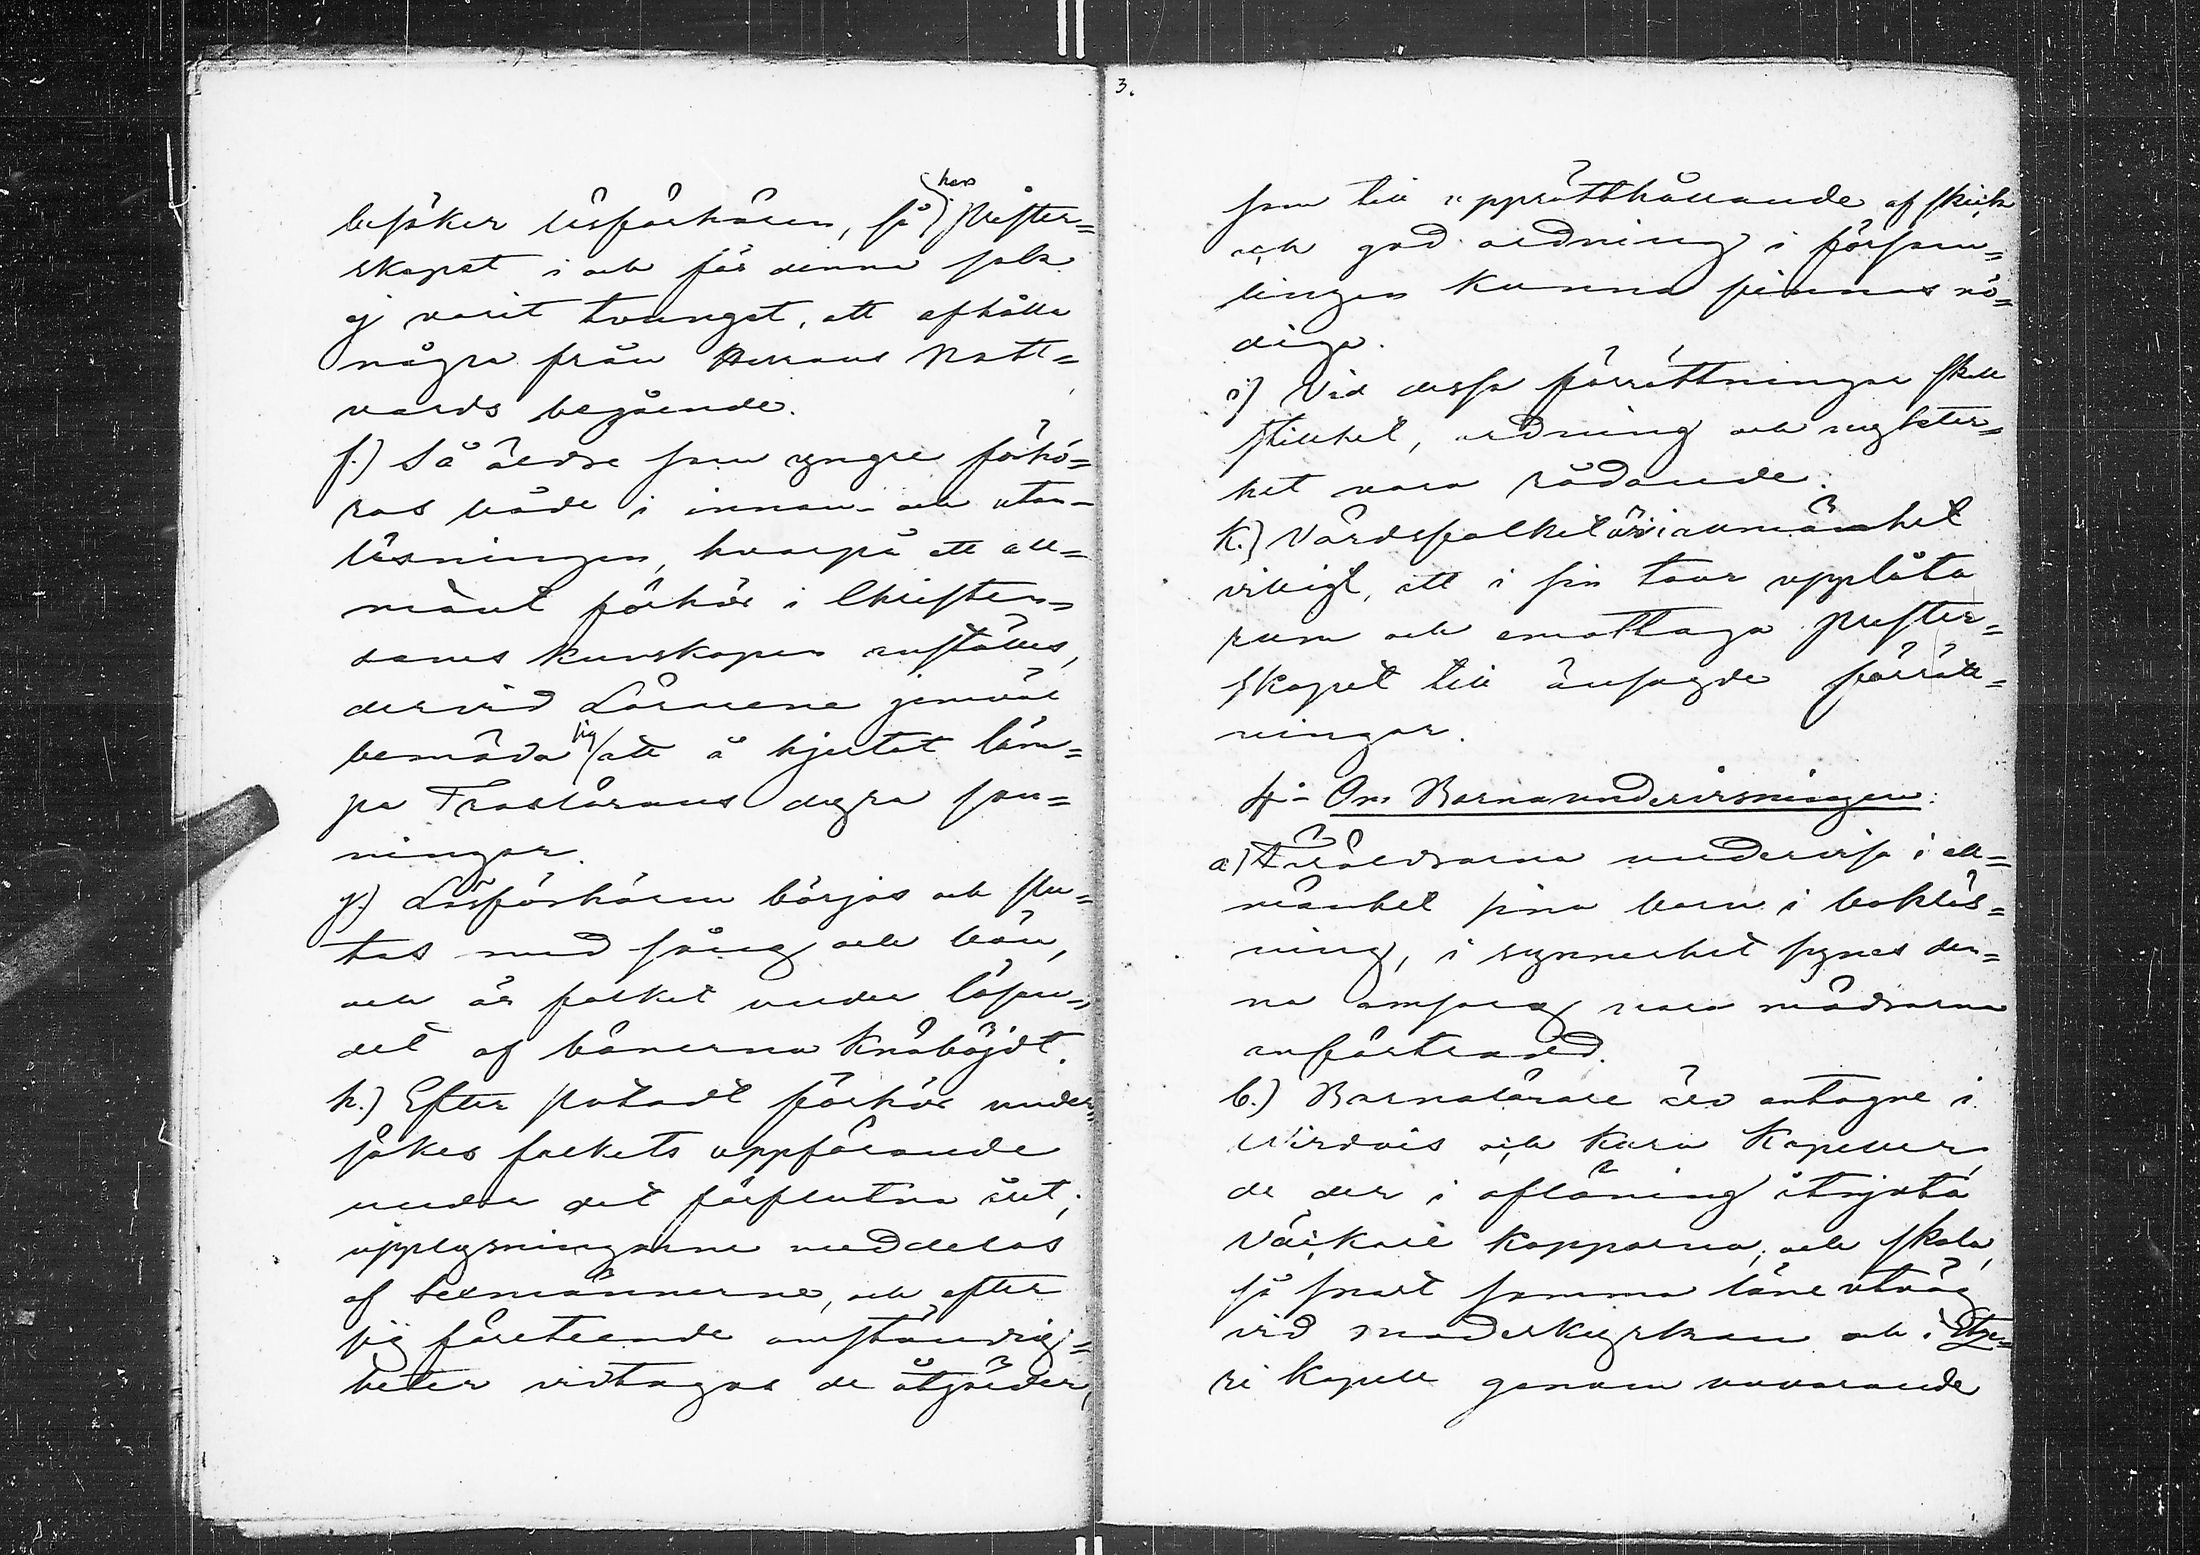 besöker läsförhören, så har Prester=
skapet i och för denna sak
ej varit tvunget, att afhålla
några från Herrans Natt=
vards begående.
f.) Så äldre som yngre förhö=
ras både i innan- och utan-
läsningen, hvarpå ett all=
mänt förhör i Christen=
doms kunskapen anställes,
dervid Lärarene jemväl
bemöda sig att å hjertat läm=
pa Troslärans dyra san=
ningar.
g.) Läsförhören börjas och slu=
tas med sång och bön,
och är folket under läsan=
det af bönerna knäböjdt.
h.) Efter slutadt förhör under=
sökes folkets uppförande
under det förflutna året;
upplysningarne meddelas
af Sexmännerne, och efter
sig företeende omständig=
heter vidtagas de åtgärder,
3.
som till upprätthållande af skick
och god ordning i försam=
lingen kunna finnas nö=
diga.
i) Vid dessa förrättningar skall
stillhet, ordning och nykter=
het vara rådande.
k.) Värdsfolket är i allmänhet
villigt, att i sin tour upplåta
rum och emottaga Prester=
skapet till änsagde förrätt=
ningar.
4- Om Barnaundervisningen:
a) Föräldrarna undervisa i all=
mänhet sina barn i bokläs=
ning, i synnerhet synes den=
na omsorg vara mödrarna
anförtrodd.
b.) Barnalärare äro antagne i
Wirdois och Kuru Kapeller,
de der i aflöning åtnjuta
Väikäri kapparna, och skola,
så snart samma löne utväg
vid moderkyrkan och i
ri Kapell genom nuvarande